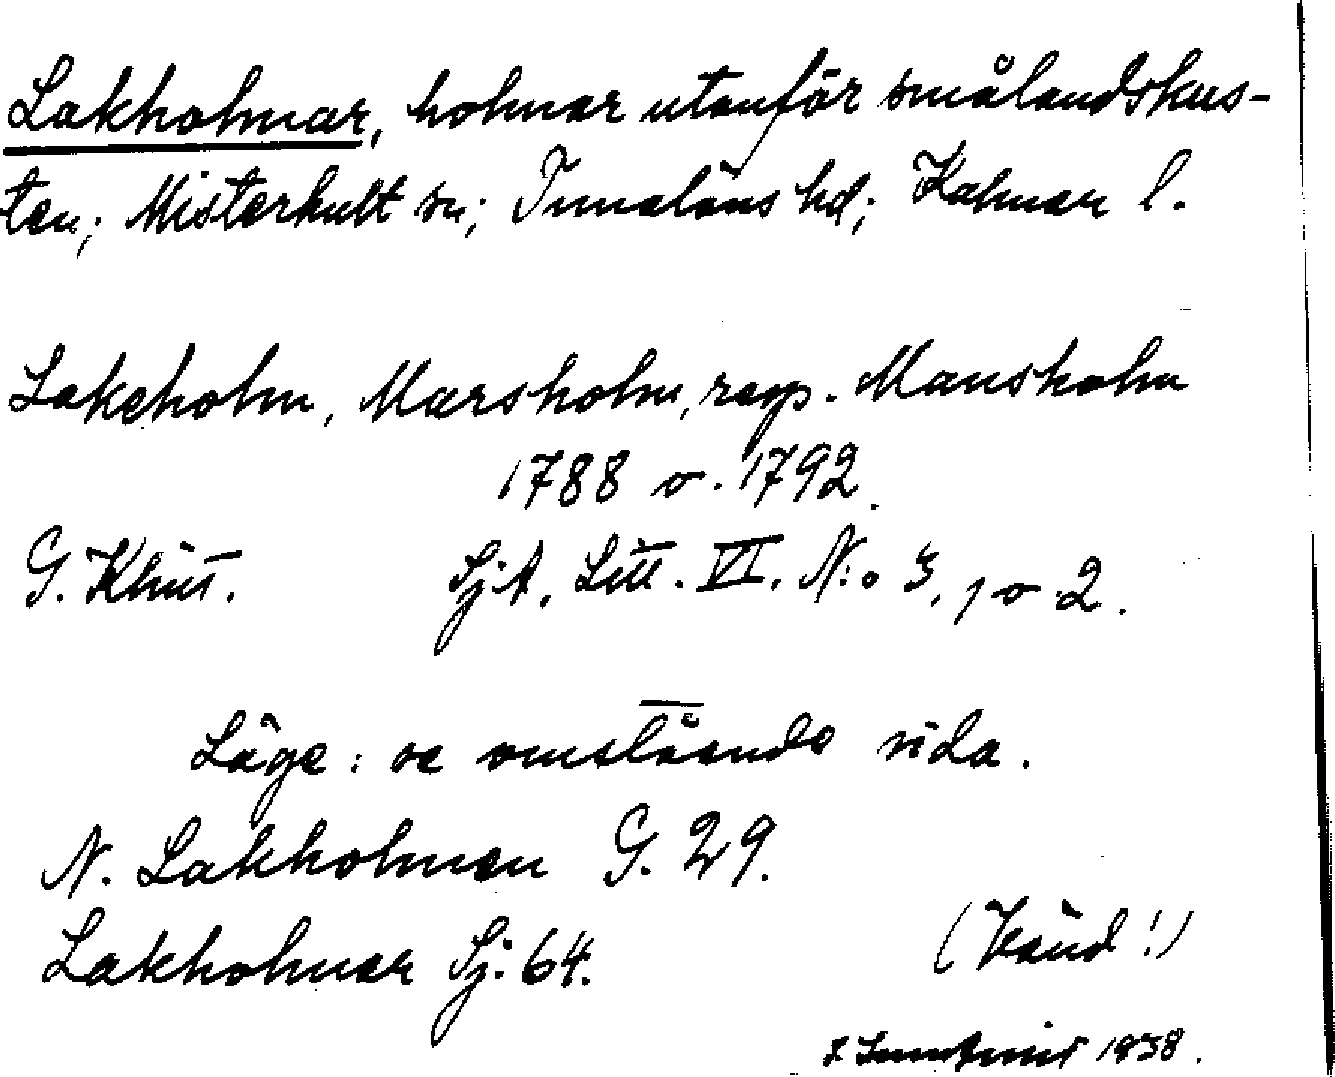 Lakholmar, holmar utanför smålandskus-
ten; Misterhult sn; Tunaläns hd; Kalmar l.
Lakeholm, Marsholm, resp. Mansholm
1788 o. 1792.
G. Klint. Sj.A. Litt. VI. N:o 3, 1 o 2.
Läge: se omstående sida.
N. Lakholmen G. 29.
Lakholmar Sj. 64.
(Vänd!)
1938.